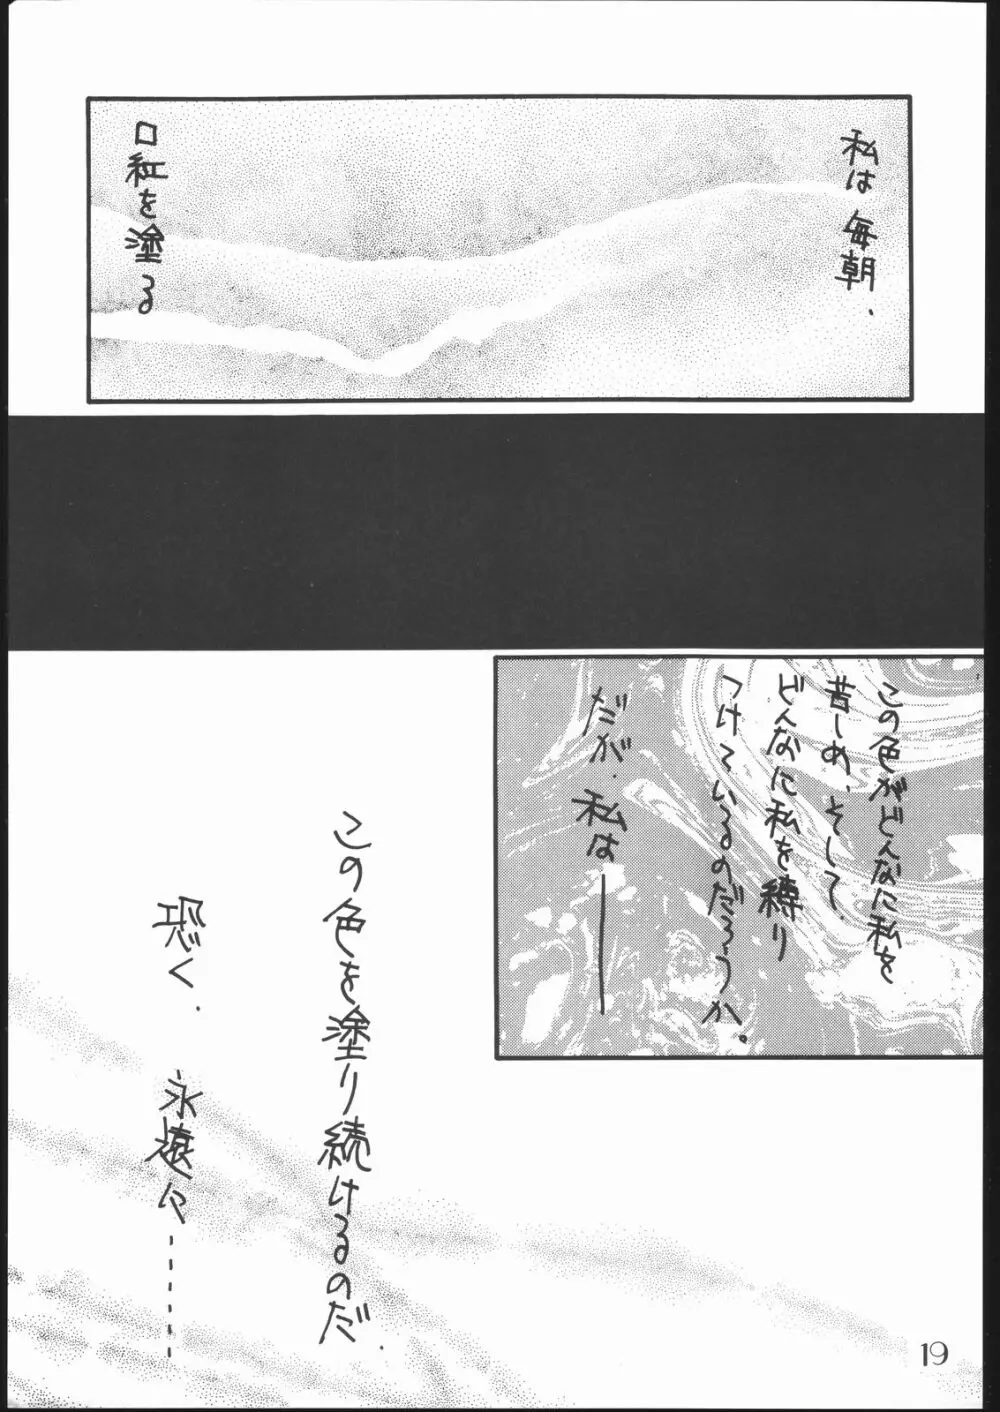 私は毎朝、
口紅を塗る
この色がどんなに私を
苦しめ、そして
どんなに私を縛り
つけているのだろうか。
だが、私は――
この色を塗り続けるのだ
恐く、永遠に………
19